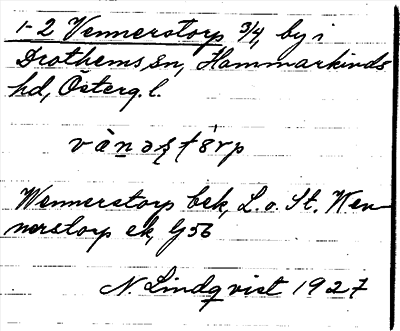 1-2 Vennerstorp 3/4, by i
Drothems sn, Hammarkinds
hd, Österg. l.
vànəʂtórp
Wennerstorp bek, L. o. St. Wen-
nerstorp ek, G56
N. Lindqvist 1927